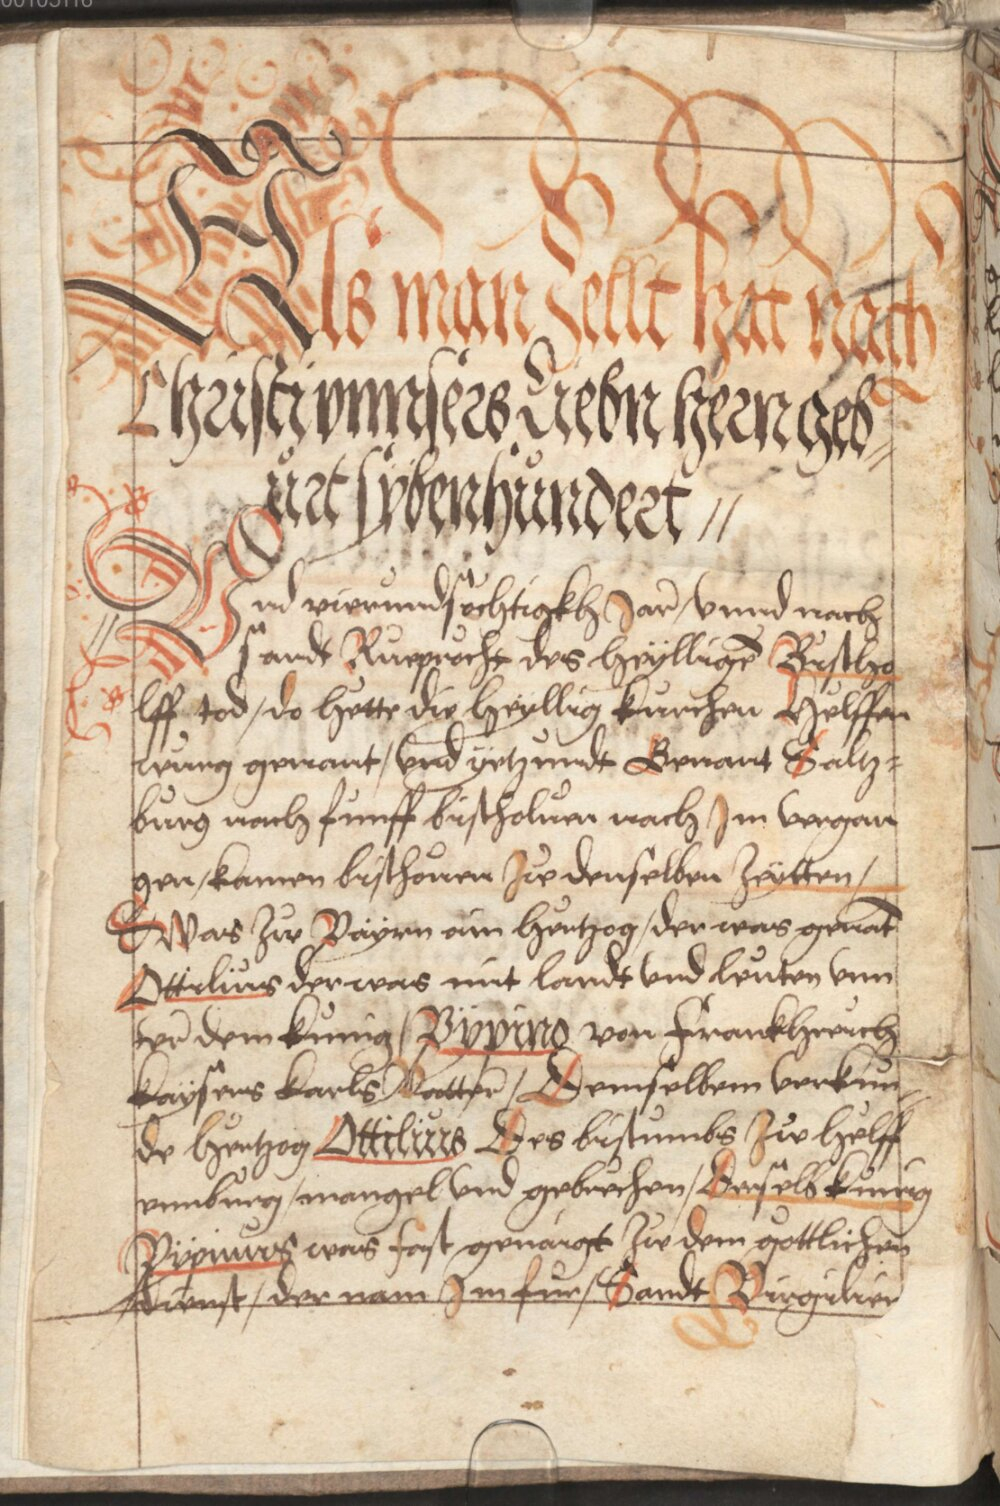 00105116
Als man Zellt hat nach
Christi vnnsers Liebn hern geb//
urt sÿbenhundert //
Vnd vierundsechtigkh Jar / vnnd nach
sandt Rueprecht des heÿlligē Bistho
lff tod / do hette die heÿllig kirchen Helffen
wurg genant / vnd yetzundt Genant Saltz=
burg nach funff bistholuen nach Im vergan
gen / kamen bisthouen Zw denselben Zeÿtten /
Was Zw Baÿrn ain hertzog / der was genāt
Ottilius der was mit landt vnd leuten vnn
ter dem kunig / Pÿpino von Frankhreich
kaÿsers karls Vatter / Demselbem verkun//
de hertzog Ottilius Des bistumbs Zw helff
ennburg / mangel vnd gebrechen / Derselb kunig
Pipinus was fast genaigt Zw dem gottlichen
dienst / der nam Im fur / Sandt Virgilien